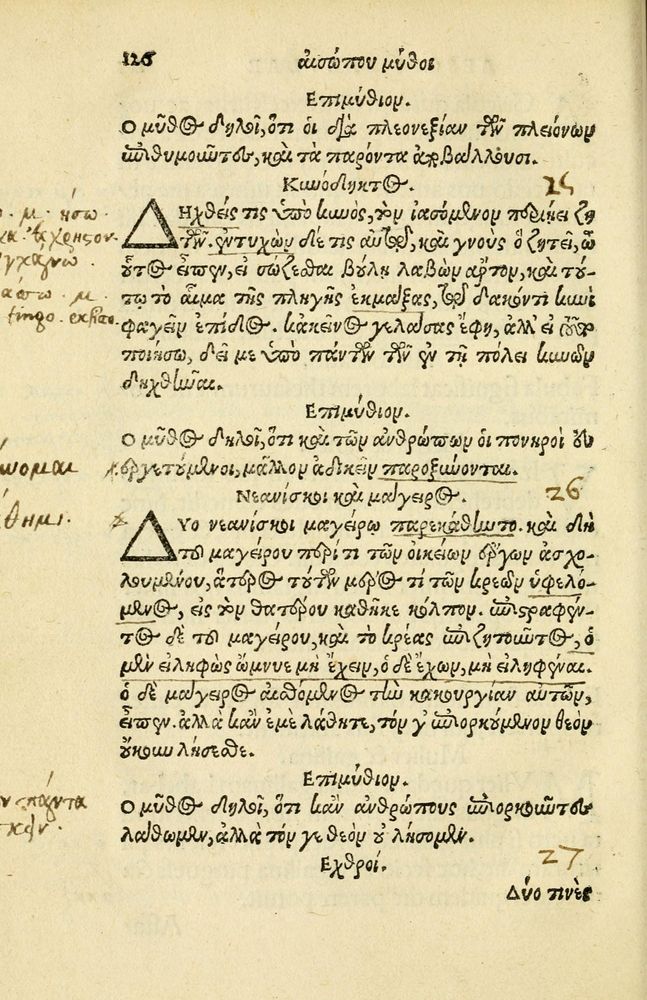 126 αἰσώπου μῦθοι
Επιμύθιον.
Ο μῦθος δηλοῖ, ὅτι οἱ διὰ πλεονεξίαν τῶν πλειόνων
ἐπιθυμοῦντες, καὶ τὰ παρόντα ἀποβάλλουσι.
Κυνόδηκτος. 25
ΔΗχθείς τις ὑπὸ κυνὸς, τὸν ἰασόμενον περιῄει ζη
τῶν. ἐντυχὼν δέ τις αὐτῷ, καὶ γνοὺς ὃ ζητεῖ, ὦ
οὗτος εἶπεν, εἰ σώζεσθαι βούλῃ λαβὼν ἄρτον, καὶ τού-
τῳ τὸ αἷμα τῆς πληγῆς ἐκμάξας, τῷ δακόντι κυνὶ
φαγεῖν ἐπίδος. κἀκεῖνος γελάσας ἔφη, ἀλλ' εἰ τοῦτο
ποιήσω, δεῖ με ὑπὸ πάντων τῶν ἐν τῇ πόλει κυνῶν
δηχθῆναι.
Επιμύθιον.
Ο μῦθος δηλοῖ, ὅτι καὶ τῶν ἀνθρώπων οἱ πονηροὶ εὐ
εργετούμενοι, μᾶλλον ἀδικεῖν παροξύνονται.
Νεανίσκοι καὶ μάγειρος. 26
ΔΥο νεανίσκοι μαγείρῳ παρεκάθηντο. καὶ δὴ
τοῦ μαγείρου περί τι τῶν οἰκείων ἔργων ἀσχο-
λουμένου, ἅτερος τούτων μέρος τὶ τῶν κρεῶν ὑφελό-
μενος, εἰς τὸν θατέρου καθῆκε κόλπον. ἐπιστραφέν-
τος δὲ τοῦ μαγείρου, καὶ τὸ κρέας ἐπιζητοῦντος, ὁ
μὲν εἰληφὼς ὤμνυε μὴ ἔχειν, ὁ δὲ ἔχων, μὴ εἰληφέναι.
ὁ δὲ μάγειρος αἰσθόμενος τὴν κακουργίαν αὐτῶν,
εἶπεν. ἀλλὰ κἂν ἐμὲ λάθητε, τόν γ' ἐπιορκούμενον θεὸν
οὔκουν λήσετε.
Επιμύθιον.
Ο μῦθος δηλοῖ, ὅτι κἂν ἀνθρώπους ἐπιορκοῦντες
λάθωμεν, ἀλλὰ τόν γε θεὸν οὐ λήσομεν.
Εχθροί. 27
Δύο τινὲς